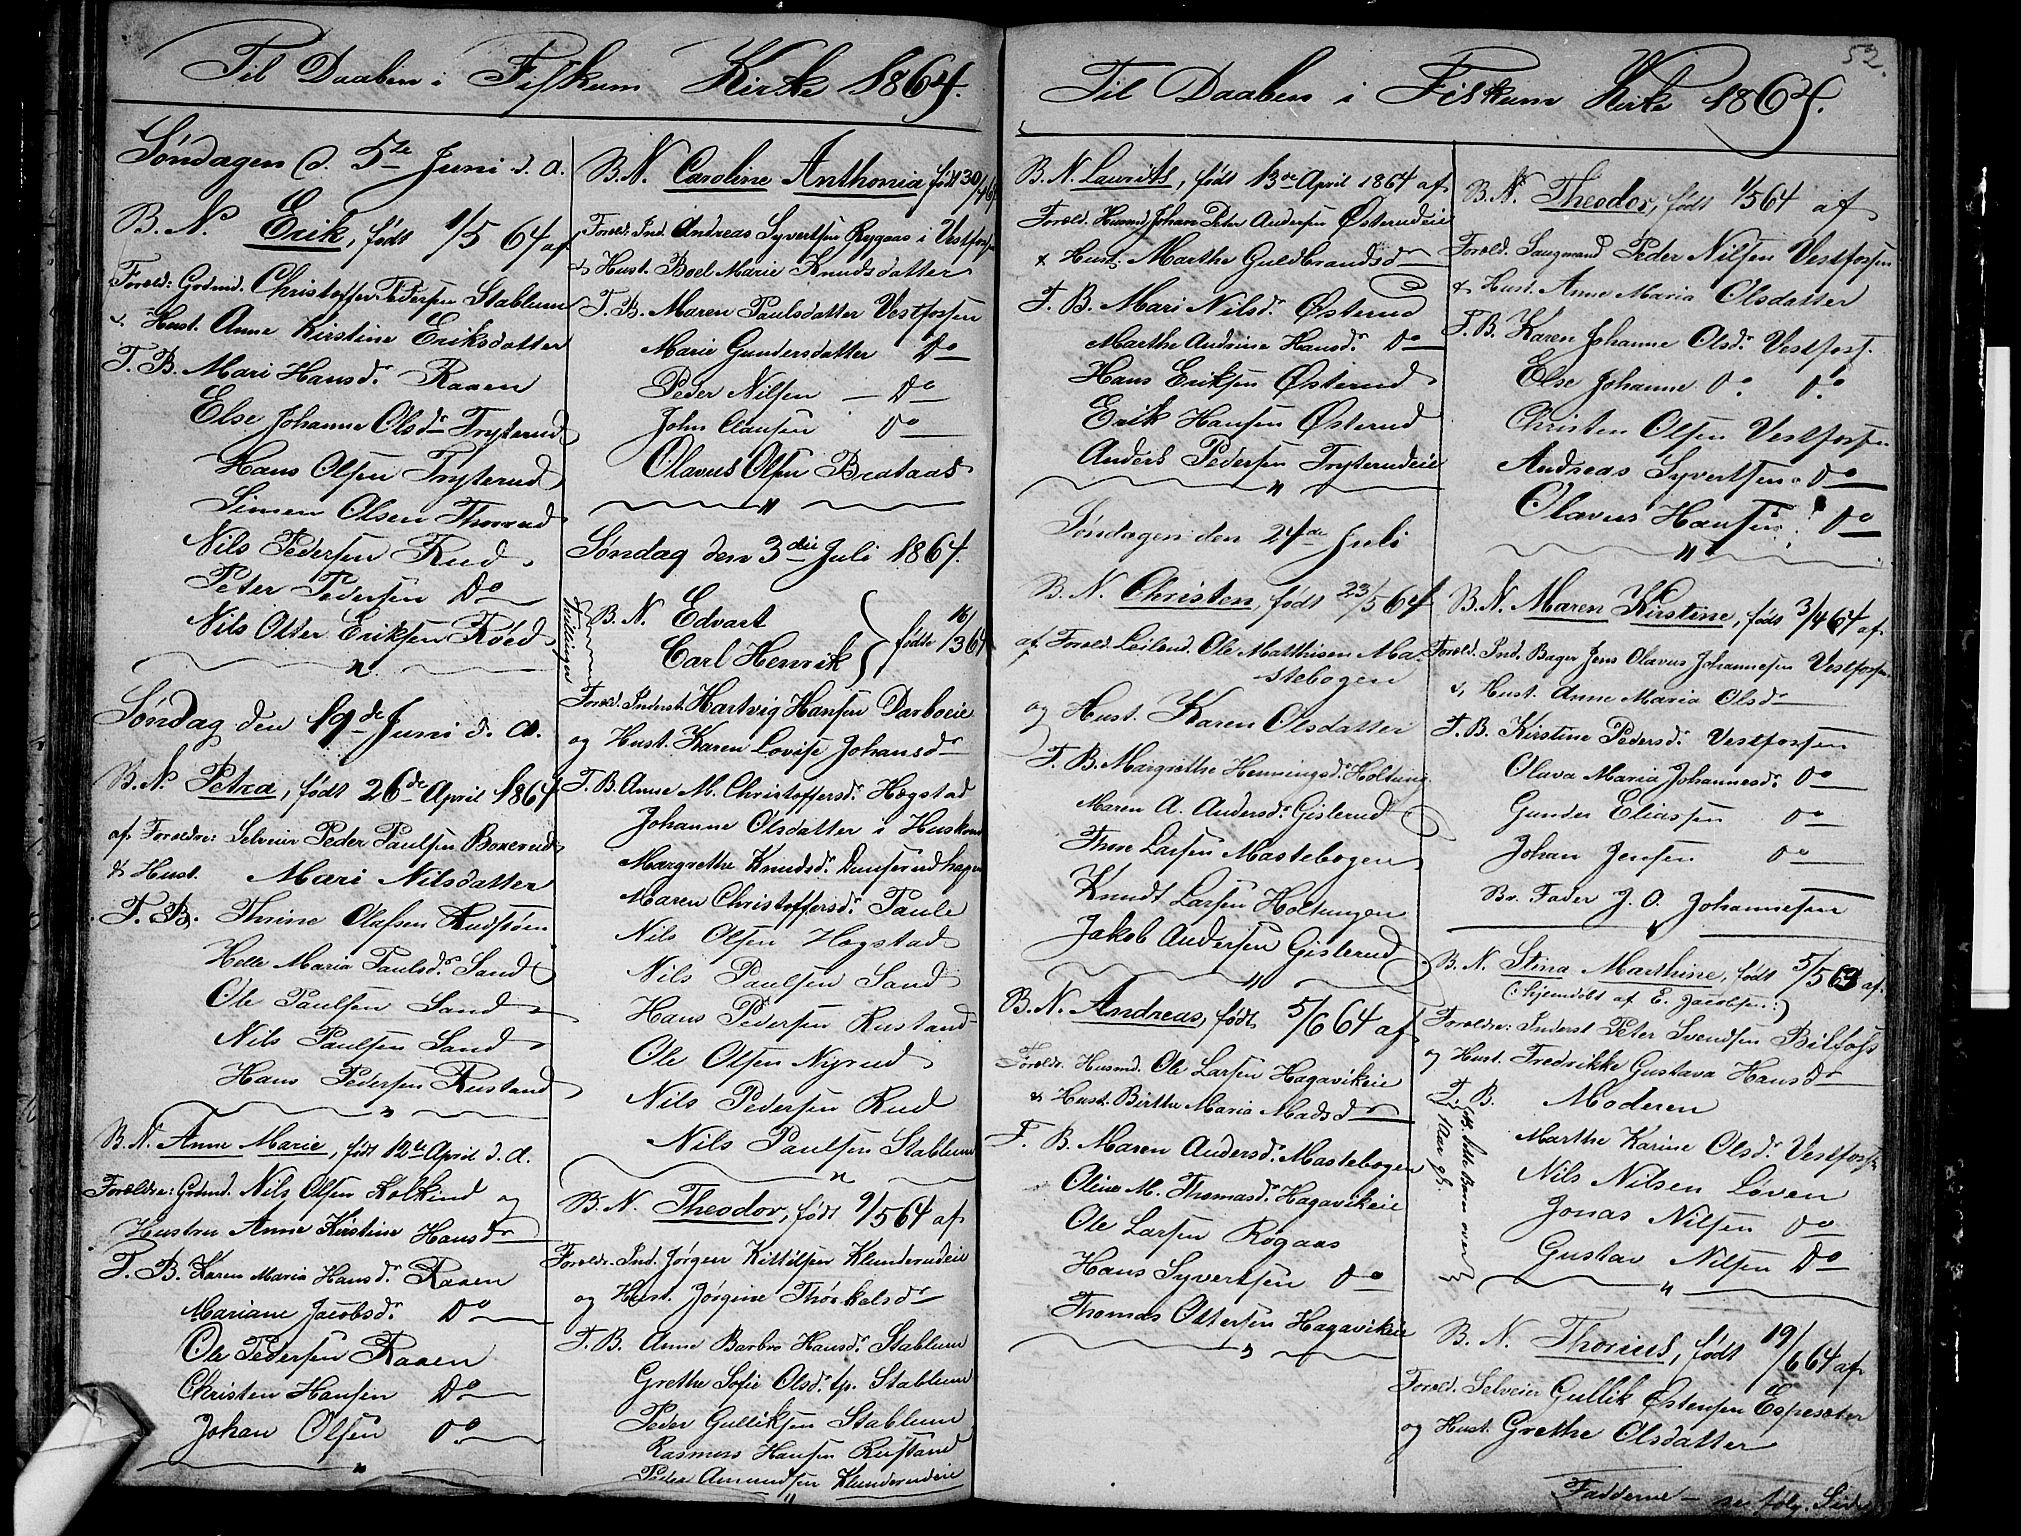 Til Daaben i Fiskum Kirke 1864.
Søndagen d. 5te Juni d. A.
B. N. Erik, født 1/5 64 af
Foræld: Grdmd. Christoffer Pedersen Stablum
& Hust. Anne Kirstine Eriksdatter
T. B. Mari Hansdr Raaen
Else Johanne Olsdr Tryterud
Hans Olsen Tryterud
Simen Olsen Thorrud
Nils Pedersen Rud
Peter Pedersen Do
Nils Olster Eriksen Røed
Søndag den 19de Juni d. A.
B. N. Petra, født 26de April 1864
af Forældre: Selveier Peder Paulsen Boxerud
& Hust. Mari Nilsdatter
T. B. Thrine Olafsen Rudstøen
Helle Maria Paulsdr Sand
Ole Paulsen Sand
Nils Paulsen Sand
Hans Pedersen Rustand
B. N. Anne Marie, født 12te April d. A.
Forældre: Grdmd. Nils Olsen Kolkind og
Hustru Anne Kirstine Hansdr
T. B. Karen Maria Hansdr Raaen
Mariane Jacobsdr Do
Ole Pedersen Raaen
Christen Hansen Do
Johan Olsen Do
B. N. Caroline Anthonia født 30/4 64
Foræld. Ind. Andreas Syvertsen Rygaas i Vestfossen
& Hust. Boel Marie Knudsdatter
T. B. Maren Paulsdatter Vestfossen
Marie Gundersdatter Do
Peder Nilsen Do
John Clausen Do
Olavus Olsen Brataas
Søndag den 3die Juli 1864.
Tvillinger
B. N. Edvart
Carl Henrik
fødte 16/3 64
Foræld. Inderst. Hartvig Hansen Darboeie
og Hust. Karen Lovise Johansdr
T. B. Anne M. Christoffersdr Hægstad
Johanne Olsdatter i Husken
Margrethe Knudsdr Dunserudhagen
Maren Christoffersdr Paule
Nils Olsen Hægstad
Nils Paulsen Sand
Hans Pedersen Rustand
Ole Olsen Nyrud
Nils Pedersen Rud
Nils Paulsen Stablum
B. N. Theodor, født 9/5 64 af
Forældr. Ind. Jørgen Kittilsen Klunderudeie
og Hust. Jørgine Thorkelsdr
T. B. Anne Barbro Hansdr Stablum
Grethe Sofie Olsdr Stablum
Peder Gulliksen Stablum
Rasmus Hansen Rustand
Peder Amundsen Klunderudeie
52.
Til Daaben i Fiskum Kirke 1864.
B. N. Laurits, født 13de April 1864 af
Foræld. Husmd Johan Peter Andersen Østerudeie
& Hust. Marthe Guldbrandsd
T. B. Mari Nilsdr Østerud
Marthe Andrine Hansdr Do
Hans Eriksen Østerud
Erik Hansen Østerud
Anders Pedersen Tryterudeie
Søndagen den 24de Juli
B. N. Christen, født 23/5 64
af Foræld. Leilend. Ole Matthisen Ma-
stebogen
og Hust. Karen Olsdatter
T. B. Margrethe Henningsdr Holtung
Maren A. Andersdr Gislerud
Thore Larsen Mastebogen
Knudt Larsen Holtungen
Jakob Andersen Gislerud
B. N. Andreas, født 5/6 64 af
Foreldr. Husmd. Ole Larsen Hagavikeie
& Hust. Birthe Maria Madsdr
T. B. Maren Andersdr Mastebogen
Oline M. Thomasdr Hagavikeie
Ole Larsen Rogaas
Hans Syvertsen Do
Thomas Ottersen Hagavikeie
B. N. Theodor, født 1/5 64 af
Foræld. Saugmand Peder Nilsen Vestfossen
& Hust. Anne Maria Olsdatter
T. B. Karen Johanne Olsdr Vestfosf.
Else Johanne Do Do
Christen Olsen Vestfossen
Andreas Syvertsen Do
Olavus Hansen Do
B. N. Maren Kirstine, født 3/4 64 af
Foræld. Ind. Bager Jens Olavus Johannesen Vestfossen
& Hust. Anne Maria Olsdr
T. B. Kirstine Pedersdr Vestfossen
Olava Maria Johannesdr Do
Gunder Eliassen Do
Johan Jensen Do
Bn. Fader J. O. Johannesen
B. N. Stina Mathine, født 5/5 63 af
(: hjemdøbt af E. Jacobsen:)
Forældre: Inderst Peter Svendsen Bilfoss
og Hust. Fredrikke Gustava Hansdr
T. B. Moderen
NB. dette Barn over
1 Aar gl.
Marthe Karine Olsdr Vestfossen
Nils Nilsen Løven
Jonas Nilsen Do
Gustav Nilsen Do
B. N. Thorius, født 19/6 64 af
Foræld. Selveier Gullik Østensen Espeseter
og Hust. Grethe Olsdatter
Fadderne — se følg. Side